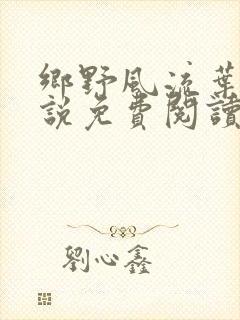 鄉野風流葉
說免費閱讀
劉心鑫